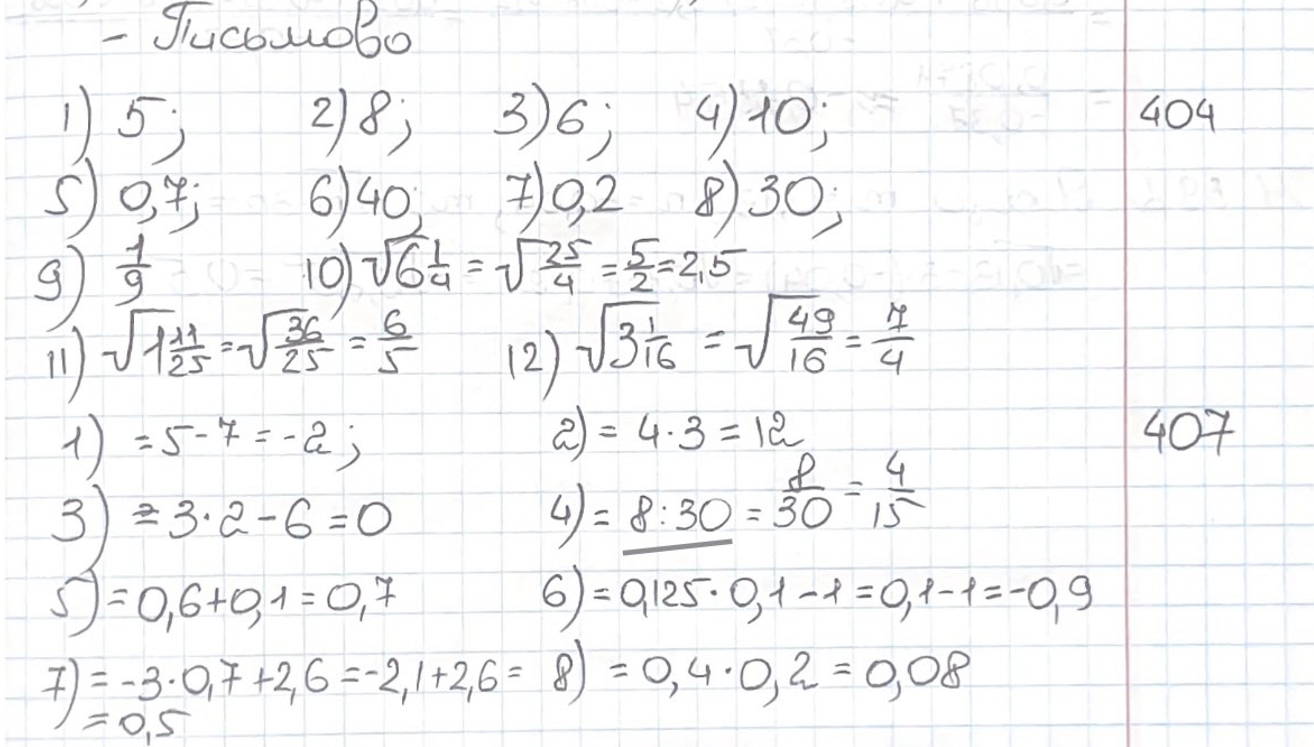 - Письмово
1) 5; 2) 8; 3) 6; 4) 10; 404
5) 0,7; 6) 40; 7) 0,2 8) 30;
9) 1/9 10) √6 1/4 = √25/4 = 5/2 = 2,5
11) √1 11/25 = √36/25 = 6/5 12) √3 1/16 = √49/16 = 7/4
1) = 5 - 7 = -2; 2) = 4·3 = 12 407
3) = 3·2 - 6 = 0 4) = 8:30 = 8/30 = 4/15
5) = 0,6 + 0,1 = 0,7 6) = 0,125·0,1 - 1 = 0,1 - 1 = -0,9
7) = -3·0,7 + 2,6 = -2,1 + 2,6 = 8) = 0,4·0,2 = 0,08
= 0,5